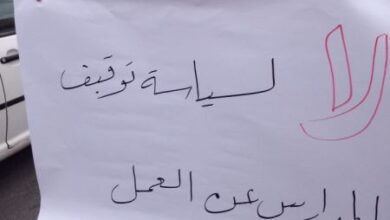 لا لسياسة توقيف
المدارس عن العمل